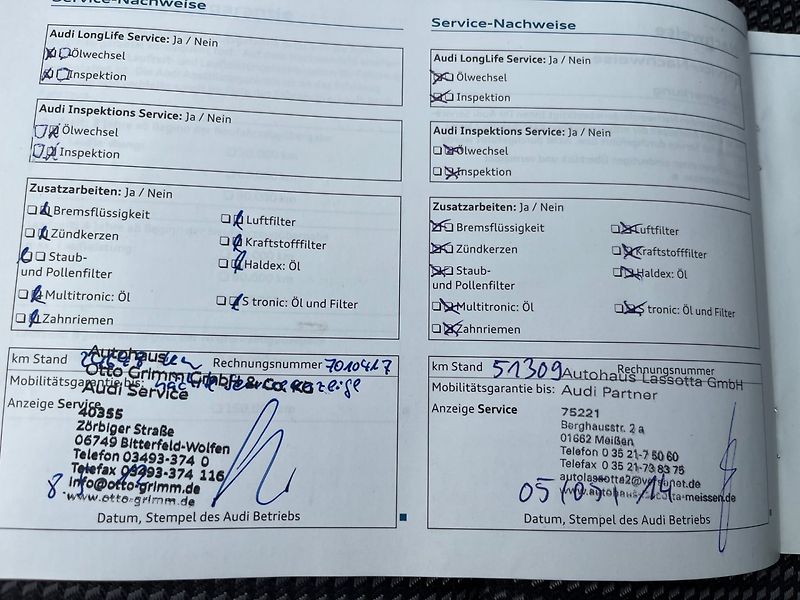 Service-Nachweise
Audi LongLife Service: Ja / Nein
Ölwechsel
Inspektion
Audi Inspektions Service: Ja / Nein
Ölwechsel
Inspektion
Zusatzarbeiten: Ja / Nein
Bremsflüssigkeit
Luftfilter
Zündkerzen
Kraftstofffilter
Staub-
und Pollenfilter
Haldex: Öl
Multitronic: Öl
S tronic: Öl und Filter
Zahnriemen
km Stand km Rechnungsnummer 7010417
Mobilitätsgarantie bis:
Anzeige Service
Autohaus
Otto Grimm GmbH & Co. KG
Audi Service
40355
Zörbiger Straße
06749 Bitterfeld-Wolfen
Telefon 03493-374 0
Telefax 03493-374 116
info@otto-grimm.de
www.otto-grimm.de
Datum, Stempel des Audi Betriebs
Service-Nachweise
Audi LongLife Service: Ja / Nein
Ölwechsel
Inspektion
Audi Inspektions Service: Ja / Nein
Ölwechsel
Inspektion
Zusatzarbeiten: Ja / Nein
Bremsflüssigkeit
Luftfilter
Zündkerzen
Kraftstofffilter
Staub-
und Pollenfilter
Haldex: Öl
Multitronic: Öl
S tronic: Öl und Filter
Zahnriemen
km Stand 51309 Rechnungsnummer
Mobilitätsgarantie bis:
Anzeige Service
Autohaus Lassotta GmbH
Audi Partner
75221
Berghausstr. 2 a
01662 Meißen
Telefon 0 35 21-7 50 60
Telefax 0 35 21-73 83 75
05/05/14
Datum, Stempel des Audi Betriebs